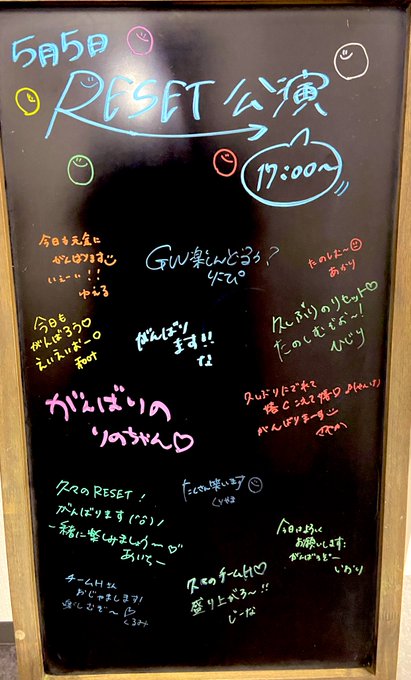 5月5日
RESET 公演
17:00〜
今日も元気に
がんばります
いぇーい!!
ゆえる
GW楽しんどろう?
りこぴ
たのしむ〜
あかり
今日も
がんばろう♡
えいえいおー
がんばり
ます!!
な
久しぶりのリセット♡
たのしむぞぉ〜!
ひじり
がんばりの
りのちゃん♡
久しぶりにでれて
がんばりまーす
久々のRESET!
がんばります(^o^)/
一緒に楽しみましょう〜♡
あいちー
たくさん笑います
くりやま
今日はよろしく
お願いします!
がんばるぞー
しおり
チームHさん
おじゃまします!
楽しむぞ〜
くるみ
久々のチームH♡
盛り上がろ〜!!
じーな